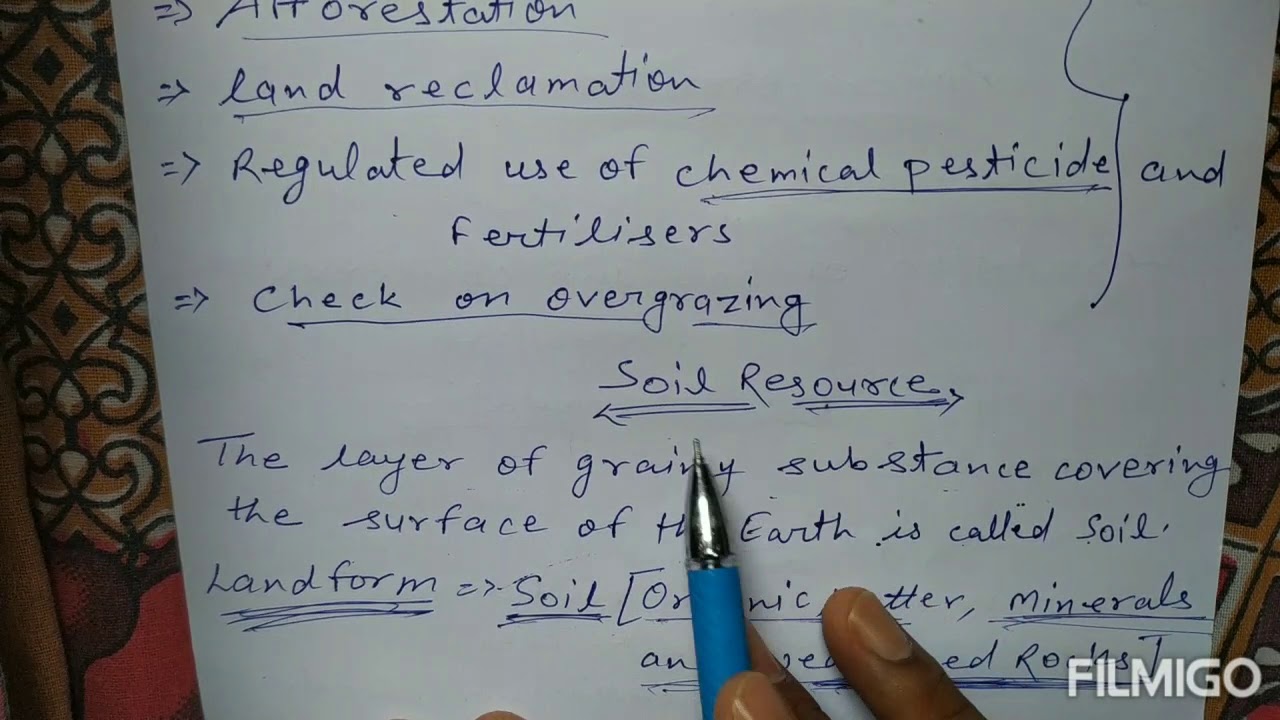 => Afforestation
=> Land reclamation
=> Regulated use of chemical pesticide and
Fertilisers
=> Check on overgrazing
Soil Resource
The layer of grainy substance covering
the surface of the Earth is called Soil.
Landform => Soil [Organic matter, Minerals
and Rocks]
FILMIGO